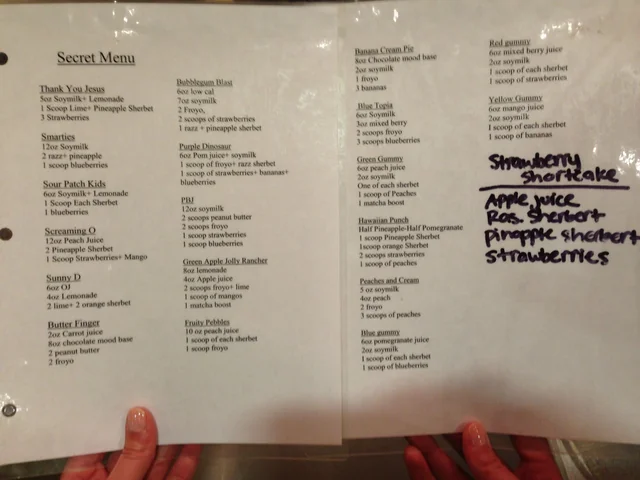 Secret Menu
Thank You Jesus
5oz Soymilk+ Lemonade
1 Scoop Lime+ Pineapple Sherbet
3 Strawberries
Smarties
12oz Soymilk
2 razz+ pineapple
1 scoop blueberries
Sour Patch Kids
6oz Soymilk+ Lemonade
1 Scoop Each Sherbet
1 blueberries
Screaming O
12oz Peach Juice
2 Pineapple Sherbet
1 Scoop Strawberries+ Mango
Sunny D
6oz OJ
4oz Lemonade
2 lime+ 2 orange sherbet
Butter Finger
2oz Carrot juice
8oz chocolate mood base
2 peanut butter
2 froyo
Bubblegum Blast
6oz low cal
7oz soymilk
2 Froyo,
2 scoops of strawberries
1 razz + pineapple sherbet
Purple Dinosaur
6oz Pom juice+ soymilk
1 scoop of froyo+ razz sherbet
1 scoop of strawberries+ bananas+
blueberries
PBJ
12oz soymilk
2 scoops peanut butter
2 scoops froyo
1 scoop strawberries
1 scoop blueberries
Green Apple Jolly Rancher
8oz lemonade
4oz Apple juice
2 scoops froyo+ lime
1 scoop of mangos
1 matcha boost
Fruity Pebbles
10 oz peach juice
1 scoop of each sherbet
1 scoop froyo
Banana Cream Pie
8oz Chocolate mood base
2oz soymilk
1 froyo
3 bananas
Blue Topia
6oz Soymilk
3oz mixed berry
2 scoops froyo
3 scoops blueberries
Green Gummy
6oz peach juice
2oz soymilk
One of each sherbet
1 scoop of Peaches
1 matcha boost
Hawaiian Punch
Half Pineapple-Half Pomegranate
1 scoop Pineapple Sherbet
1scoop orange Sherbet
2 scoops strawberries
1 scoop of peaches
Peaches and Cream
5 oz soymilk
4oz peach
2 froyo
3 scoops of peaches
Blue gummy
6oz pomegranate juice
2oz soymilk
1 scoop of each sherbet
1 scoop of blueberries
Red gummy
6oz mixed berry juice
2oz soymilk
1 scoop of each sherbet
1 scoop of strawberries
Yellow Gummy
6oz mango juice
2oz soymilk
1 scoop of each sherbet
1 scoop of bananas
Strawberry
shortcake
Apple juice
Ras. Sherbert
pineapple sherbert
strawberries